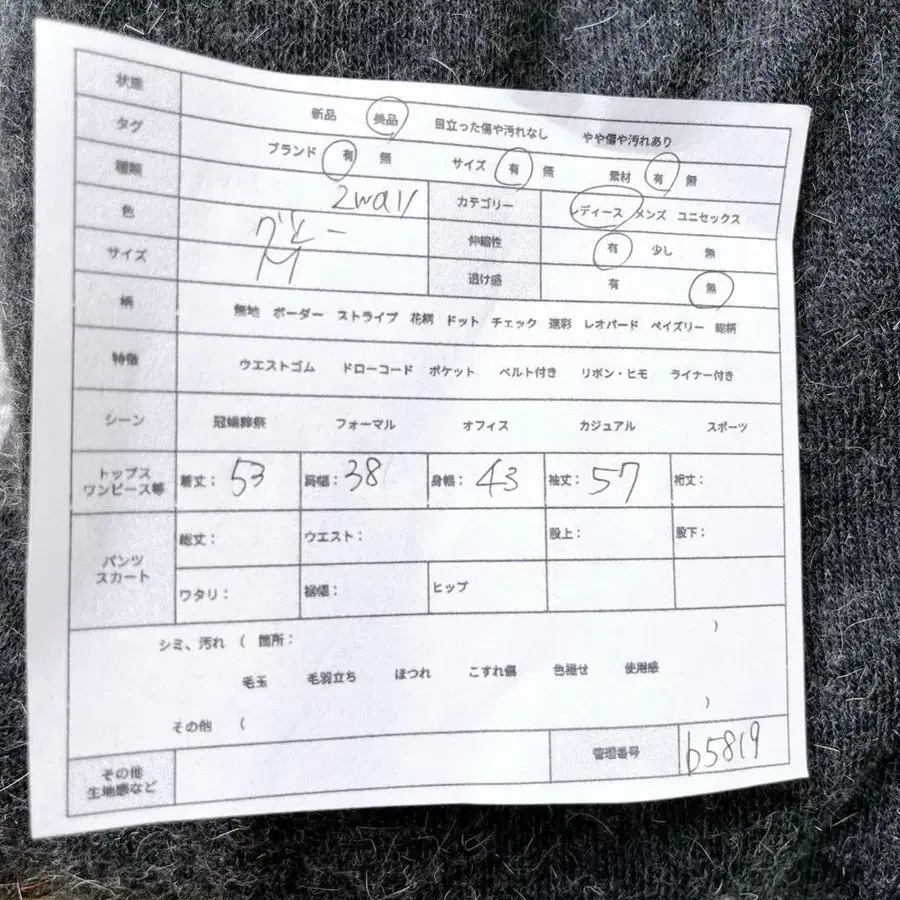 状態 新品 美品 目立った傷や汚れなし やや傷や汚れあり
タグ ブランド 有 無 サイズ 有 無 素材 有 無
種類 2way カテゴリー レディース メンズ ユニセックス
色 グレー 伸縮性 有 少し 無
サイズ M 透け感 有 無
柄 無地 ボーダー ストライプ 花柄 ドット チェック 迷彩 レオパード ペイズリー 総柄
特徴 ウエストゴム ドローコード ポケット ベルト付き リボン・ヒモ ライナー付き
シーン 冠婚葬祭 フォーマル オフィス カジュアル スポーツ
トップス
ワンピース等 着丈: 53 肩幅: 38 身幅: 43 袖丈: 57 裄丈:
総丈: ウエスト: 股上: 股下:
パンツ
スカート
ワタリ: 裾幅: ヒップ
シミ、汚れ ( 箇所: )
毛玉 毛羽立ち ほつれ こすれ傷 色褪せ 使用感
その他 ( )
その他
生地感など 管理番号 b5819